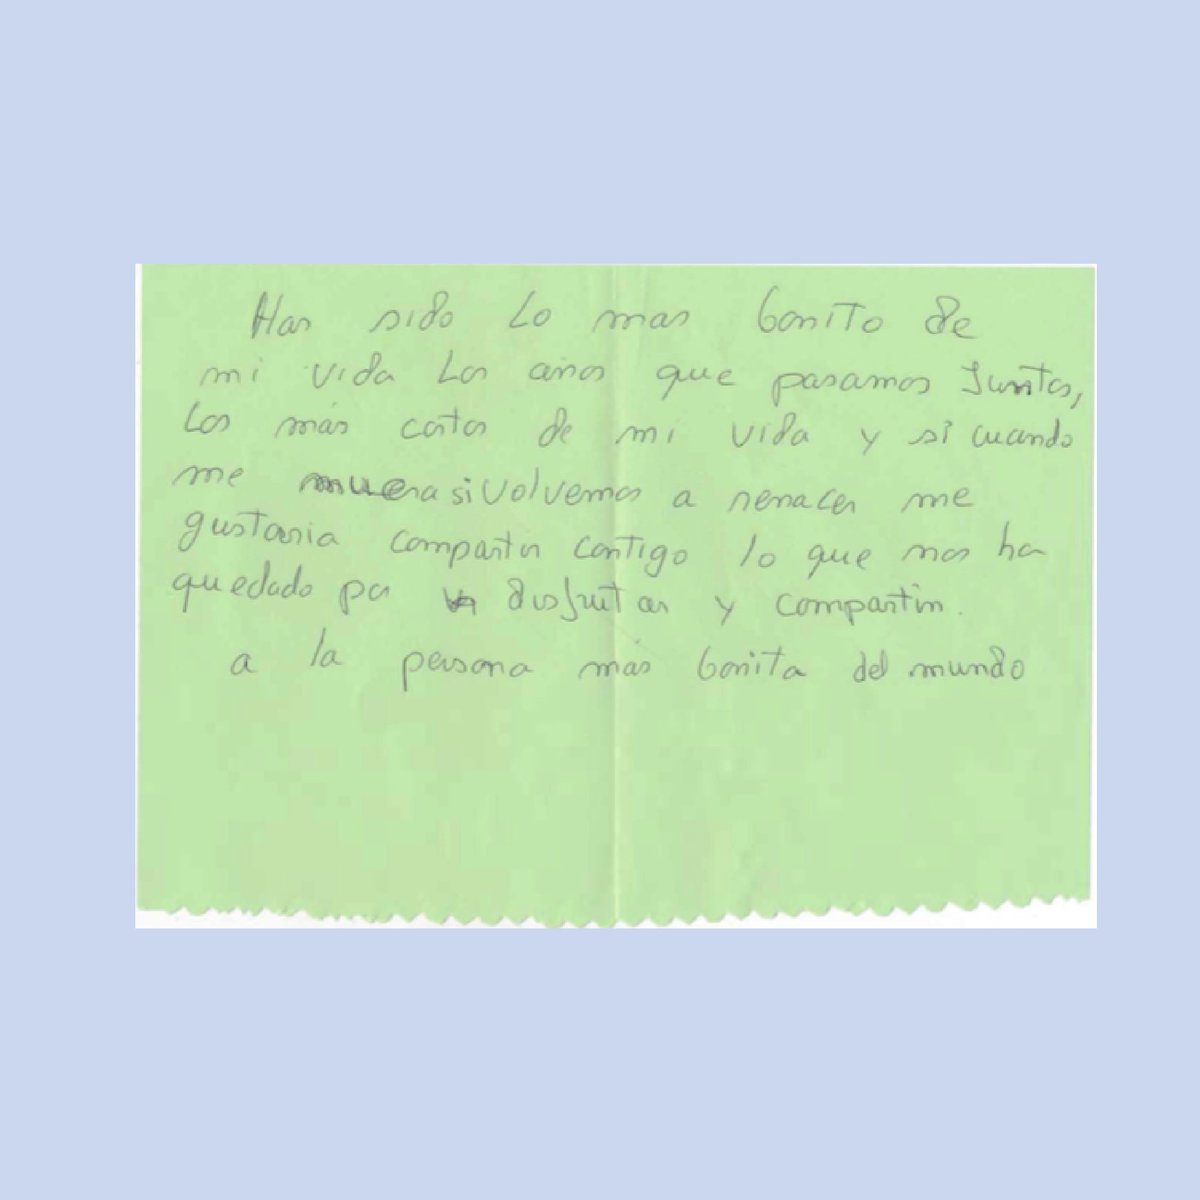 Has sido Lo mas bonito de
mi vida Los años que pasamos Juntos,
Los más cortos de mi vida y si cuando
me muera si volvemos a renacer me
gustaria compartir contigo lo que nos ha
quedado pa disfrutar y compartir.
a la persona más bonita del mundo